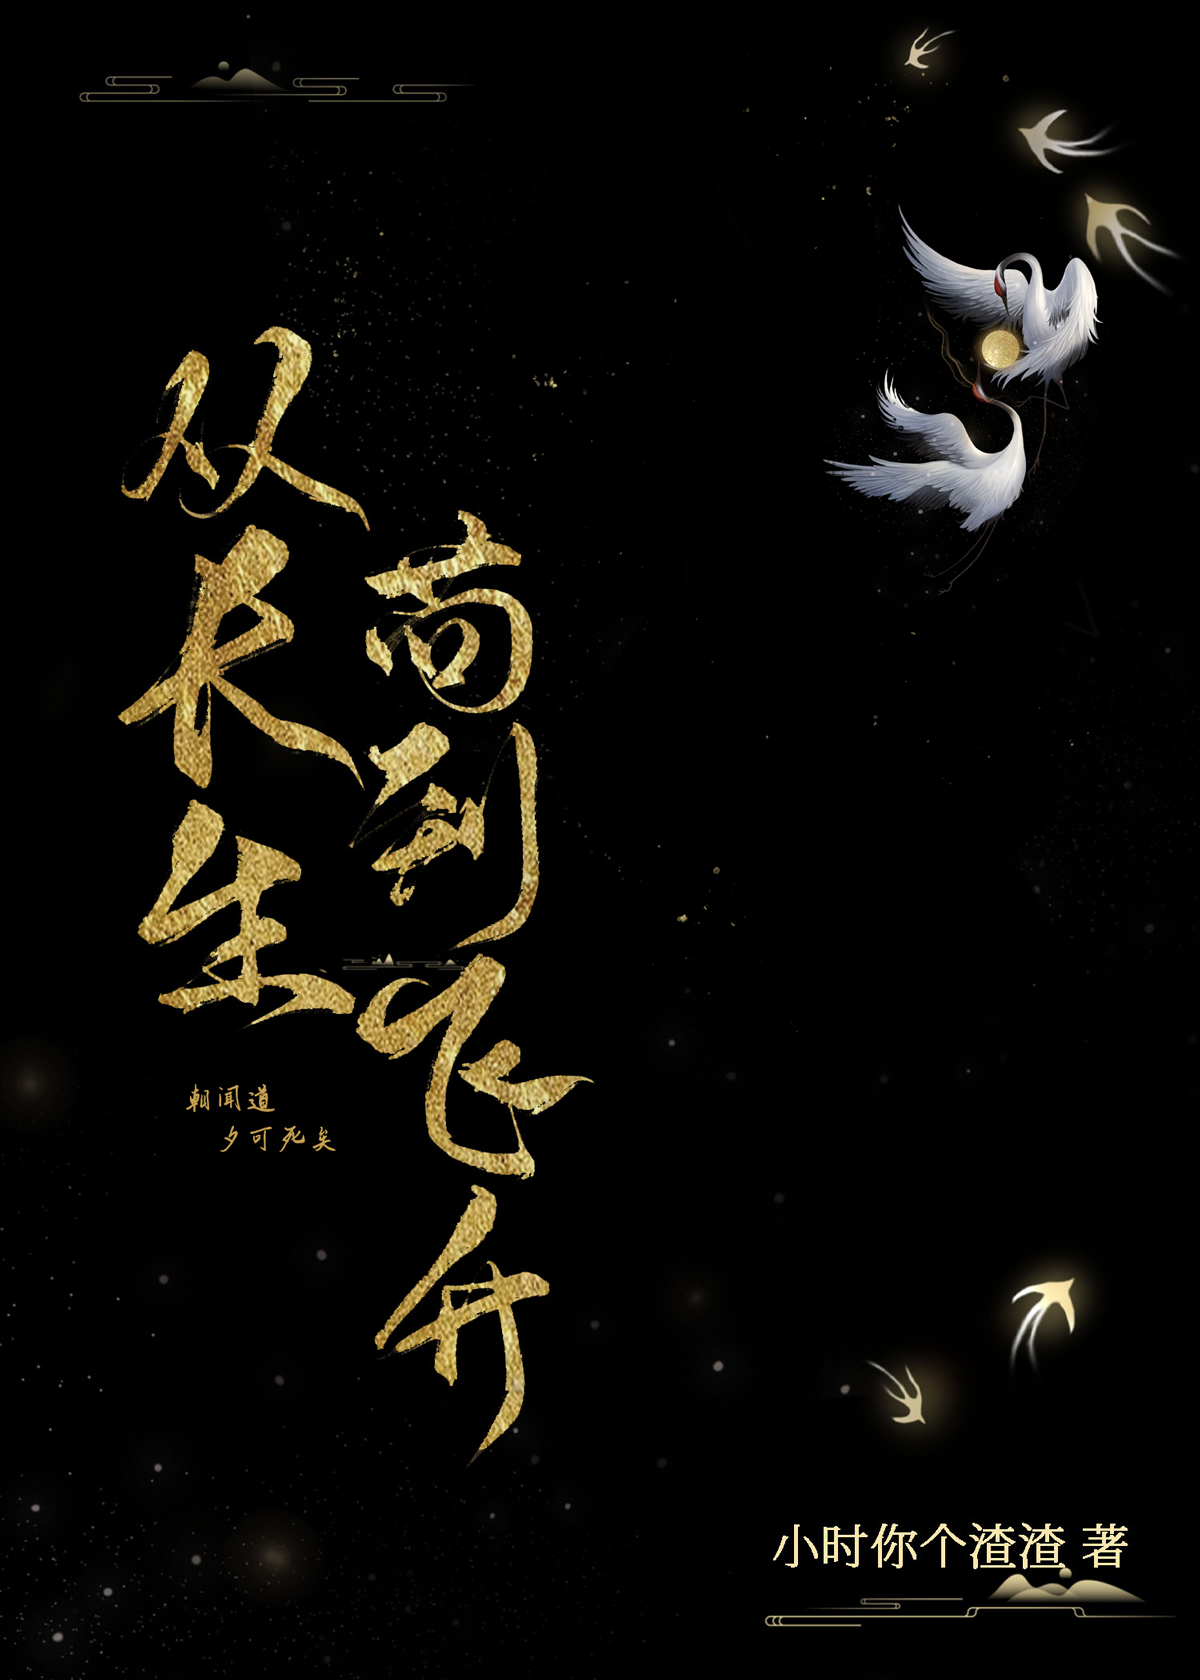 从长生
苟到飞升
朝闻道
夕可死矣
小时你个渣渣 著